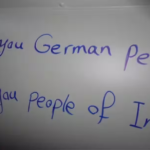 you German Pe
you people of I